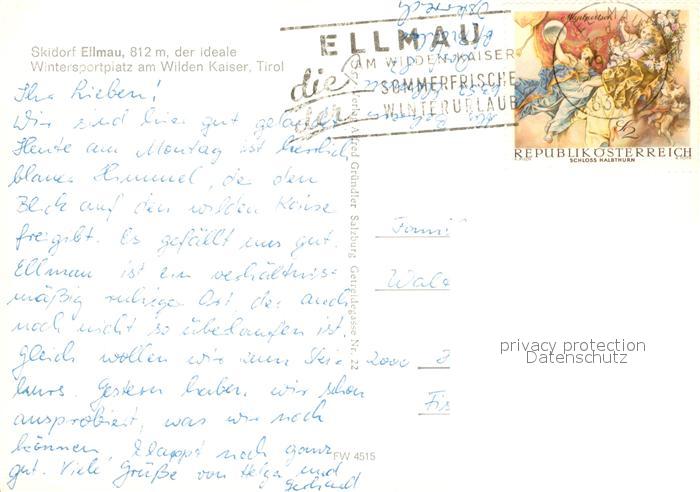 Skidorf Ellmau, 812 m, der ideale
Wintersportplatz am Wilden Kaiser, Tirol
Ihr Lieben!
Wir sind hier gut gelandet.
Heute am Montag ist herrlich
blauer Himmel, der den
Blick auf den wilden Kaiser
freigibt. Es gefällt uns gut.
Ellmau ist ein verhältnis-
mäßig ruhiger Ort, der auch
noch nicht so überlaufen ist.
Gleich wollen wir zum Ski-
kurs. Gestern haben wir schon
ausprobiert, was wir noch
können, klappt noch ganz
gut. Viele Grüße von Helga und
ELLMAU
AM WILDEN KAISER
die
SOMMERFRISCHE
der
WINTERURLAUB
REPUBLIK ÖSTERREICH
SCHLOSS HALBTHURN
Verlag Alfred Gründler Salzburg Getreidegasse Nr. 22
Fami
Walt
2000
Fis
FW 4515
privacy protection
Datenschutz